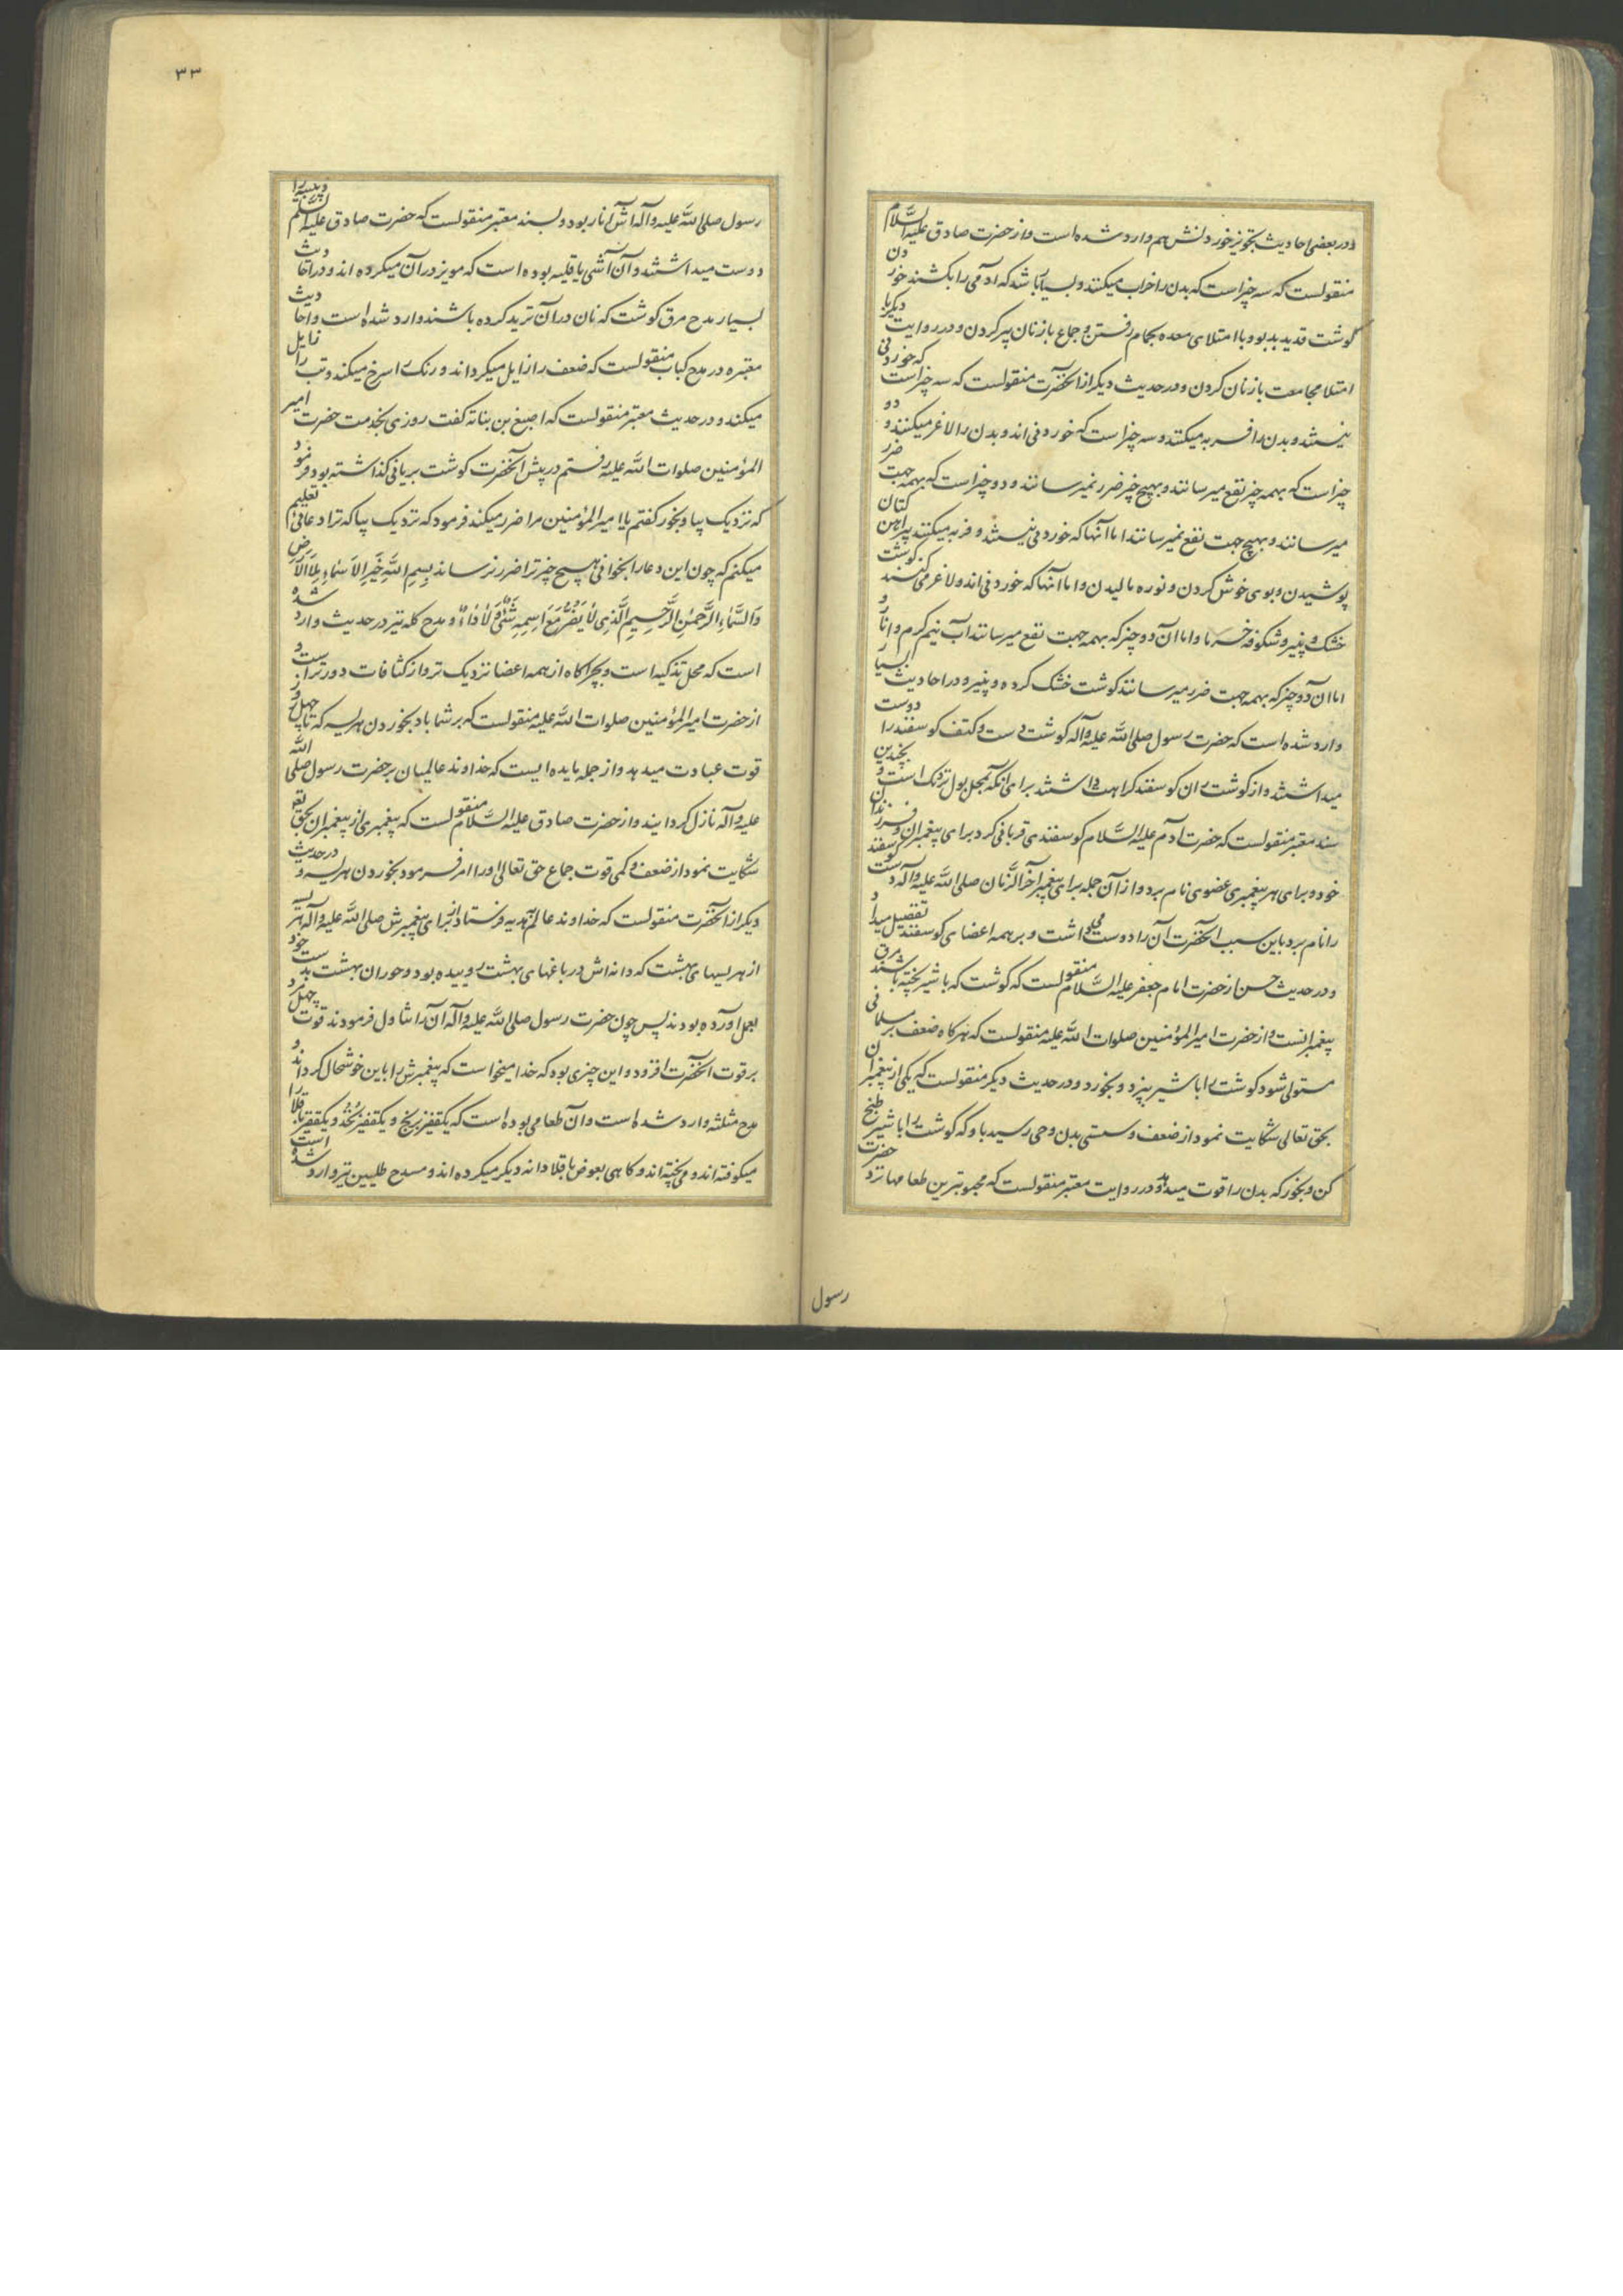 و در بعضی احادیث تجویز خوردنش هم وارد شده است و از حضرت صادق علیه السَّلام
منقولست که سه چیز است که بدن را خراب میکنند و بسیار باشد که آدمی را بکشند خوردن
گوشت قدید بدبو و با امتلای معده بحمام رفتن و جماع با زنان پیر کردن و در روایت دیگر با
امتلا مجامعت با زنان کردن و در حدیث دیگر از آنحضرت منقولست که سه چیز است که خوردنی
نیستند و بدن را فربه میکنند و سه چیز است که خوردنی اند و بدن را لاغر میکنند و دو
چیز است که بهمه چیز نفع میرسانند و بهیچ چیز ضرر نمیرسانند و دو چیز است که بهمه جهت ضرر
میرسانند و بهیچ جهت نفع نمیرسانند اما آنها که خوردنی نیستند و فربه میکنند پیراهن کتان
پوشیدن و بوی خوش کردن و نوره مالیدن و اما آنها که خوردنی اند و لاغر می کنند گوشت
خشک و پنیر و شکوفه خرما و اما آن دو چیز که بهمه جهت نفع میرسانند آب نیم گرم و انار و
اما آن دو چیز که بهمه جهت ضرر میرسانند گوشت خشک کرده و پنیر و در احادیث بسیار
وارد شده است که حضرت رسول صلی الله علیه وآله گوشت دست و کتف گوسفند را دوست
میداشتند و از گوشت ران گوسفند کراهت داشتند برای آنکه بمحل بول نزدیک است و بچندین
سند معتبر منقولست که حضرت آدم علیه السَّلام گوسفندی قربانی کرد برای پیغمبران فرزندان
خود و برای هر پیغمبری عضوی نام برد و از آن جمله برای پیغمبر آخر الزَّمان صلی الله علیه وآله دست گوسفند
را نام برد باین سبب آنحضرت آن را دوست میداشت و بر همه اعضای گوسفند تفضیل میداد
و در حدیث حسن از حضرت امام جعفر علیه السَّلام منقولست که گوشت که با شیر پخته باشند مرق
پیغمبرانست و از حضرت امیرالمؤمنین صلوات الله علیه منقولست که هرگاه ضعف بر مسلمانی
مستولی شود گوشت را با شیر بپزد و بخورد و در حدیث دیگر منقولست که یکی از پیغمبران
بحق تعالی شکایت نمود از ضعف و سستی بدن وحی رسید باو که گوشت را با شیر طبخ
کن و بخور که بدن را قوت میدهد و در روایت معتبر منقولست که محبوبترین طعامها نزد حضرت
رسول
۳۳
رسول صلی الله علیه وآله آش انار بود و بسند معتبر منقولست که حضرت صادق علیه السلم زبیبیه را
دوست میداشتند و آن آشی یا قلیه بوده است که مویز در آن میکرده اند و در احادیث
بسیار مدح مرق گوشت که نان در آن ترید کرده باشند وارد شده است و احادیث
معتبره در مدح کباب منقولست که ضعف را زایل میگرداند و رنگ را سرخ میکند و تب را زایل
میکند و در حدیث معتبر منقولست که اصبغ بن بناته گفت روزی بخدمت حضرت امیر
المؤمنین صلوات الله علیه رفتم در پیش آنحضرت گوشت بریانی گذاشته بود فرمود
که نزدیک بیا و بخور گفتم یا امیرالمؤمنین مرا ضرر میکند فرمود که نزدیک بیا که ترا دعائی تعلیم
میکنم که چون این دعا را بخوانی هیچ چیز ترا ضرر نرساند بِسمِ اللهِ خَیرِ الاَسمَاءِ مِلاَ الاَرضِ
وَالسَّمَاءِ الرَّحمٰنِ الرَّحِیمِ الَّذِی لا یَضُرُّ مَعَ اسمِهِ شَئٌ وَلا دَاءٌ و مدح کله نیز در حدیث وارد شده
است که محل تذکیه است و بچراگاه از همه اعضا نزدیک تر و از کثافات دورتر است و
از حضرت امیرالمؤمنین صلوات الله علیه منقولست که بر شما باد بخوردن هریسه که تا چهل روز
قوت عبادت میدهد و از جمله مایده ایست که خداوند عالمیان بر حضرت رسول صلی الله
علیه وآله نازل گردانیند و از حضرت صادق علیه السَّلام منقولست که پیغمبری از پیغمبران بحق تعه
شکایت نمود از ضعف و کمی قوت جماع حق تعالی او را امر فرمود بخوردن هریسه و در حدیث
دیگر از آنحضرت منقولست که خداوند عالم هدیه فرستاد از برای پیغمبرش صلی الله علیه وآله هریسه
از هریسهای بهشت که دانه اش در باغهای بهشت روییده بود و حوران بهشت بدست خود
بعمل آورده بودند پس چون حضرت رسول صلی الله علیه وآله آن را تناول فرمودند قوت چهل مرد
بر قوت آنحضرت افزود و این چیزی بود که خدا میخواست که پیغمبرش را باین خوشحال گرداند و
مدح مثلثه وارد شده است و آن طعامی بوده است که یکقفیز برنج و یکقفیز نخُد و یکقفیز باقلا را
میکوفته اند و می پخته اند و گاهی بعوض باقلا دانه دیگر میکرده اند و مدح طلبین نیز وارد شده است